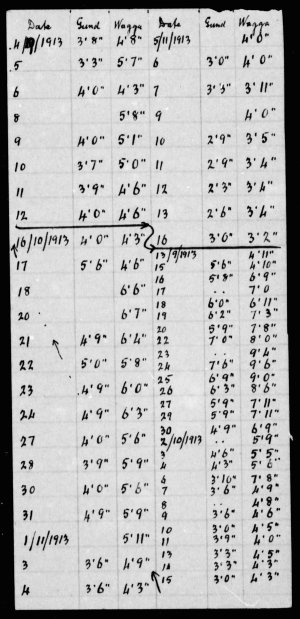 Date Gund Wagga Date Gund Wagga
4/9/1913 3'8" 4'8" 5/11/1913 4'0"
5 3'3" 5'7" 6 3'0" 4'0"
6 4'0" 4'3" 7 3'3" 3'11"
8 5'8" 9 4'0"
9 4'0" 5'1" 10 2'9" 3'5"
10 3'7" 5'0" 11 2'9" 3'4"
11 3'9" 4'6" 12 2'3" 3'4"
12 4'0" 4'6" 13 2'6" 3'4"
16/10/1913 4'0" 4'3" 16 3'0" 3'2"
13/9/1913 4'11"
17 5'6" 4'6" 15 5'6" 4'10"
16 5'8" 6'9"
18 6'6" 17 .. 7'0
18 6'0" 6'11"
20 6'7" 19 6'2" 7'3"
20 5'9" 7'8"
21 4'9" 6'4" 22 7'0" 8'0"
23 .. 9'4"
22 5'0" 5'8" 24 7'6" 9'6"
25 6'9" 9'0"
23 4'9" 6'0" 26 6'3" 8'6"
27 5'9" 7'11"
24 4'9" 6'3" 29 5'9" 7'11"
30 4'9" 6'9"
27 4'0" 5'6" 2/10/1913 .. 5'9"
3 4'6" 5'5"
28 3'9" 5'9" 4 4'3" 5'6"
6 3'10" 7'8"
30 4'0" 5'6" 7 3'6" 4'9"
8 .. 4'8"
31 4'9" 5'9" 9 3'6" 4'6"
10 3'0" 4'5"
1/11/1913 5'11" 11 3'9" 4'0"
13 3'3" 4'5"
3 3'6" 4'9" 14 3'3" 4'3"
4 3'6" 4'3" 15 3'0" 4'3"